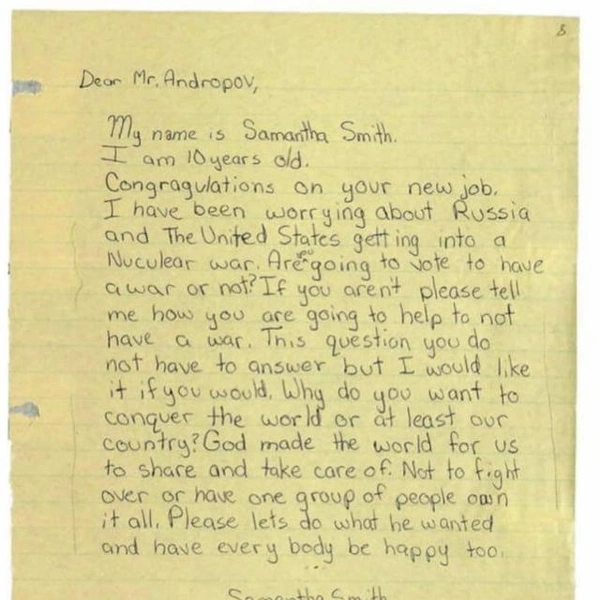 8
Dear Mr. Andropov,
My name is Samantha Smith.
I am 10 years old.
Congragulations on your new job.
I have been worrying about Russia
and The United States getting into a
Nuculear war. Are you going to vote to have
a war or not? If you arent please tell
me how you are going to help to not
have a war. This question you do
not have to answer but I would like
it if you would. Why do you want to
conquer the world or at least our
country? God made the world for us
to share and take care of. Not to fight
over or have one group of people own
it all. Please lets do what he wanted
and have every body be happy too.
Samantha Smith